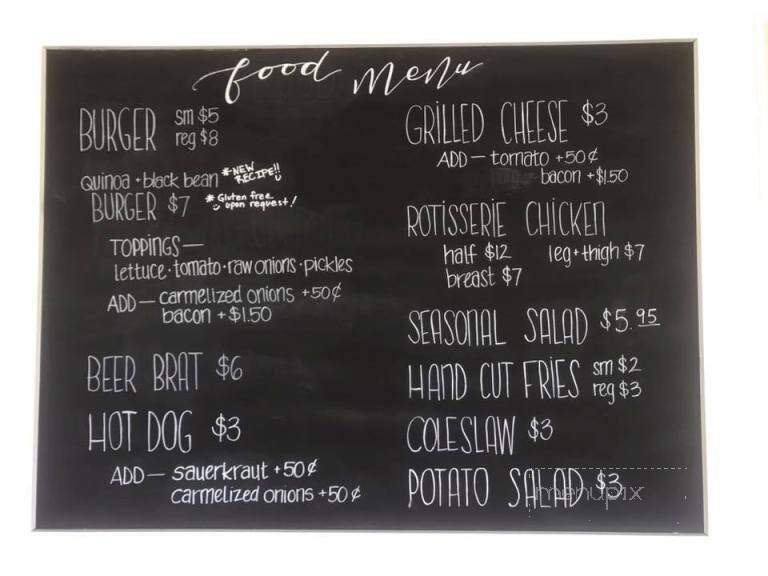 food menu
BURGER sm $5
reg $8
Quinoa + black bean *NEW RECIPE!!
BURGER $7 * Gluten free upon request!
TOPPINGS—
lettuce · tomato · raw onions · pickles
ADD — carmelized onions +50¢
bacon +$1.50
BEER BRAT $6
HOT DOG $3
ADD — sauerkraut +50¢
carmelized onions +50¢
GRILLED CHEESE $3
ADD — tomato +50¢
bacon +$1.50
ROTISSERIE CHICKEN
half $12 leg+thigh $7
breast $7
SEASONAL SALAD $5.95
HAND CUT FRIES sm $2
reg $3
COLESLAW $3
POTATO SALAD $3
menupix